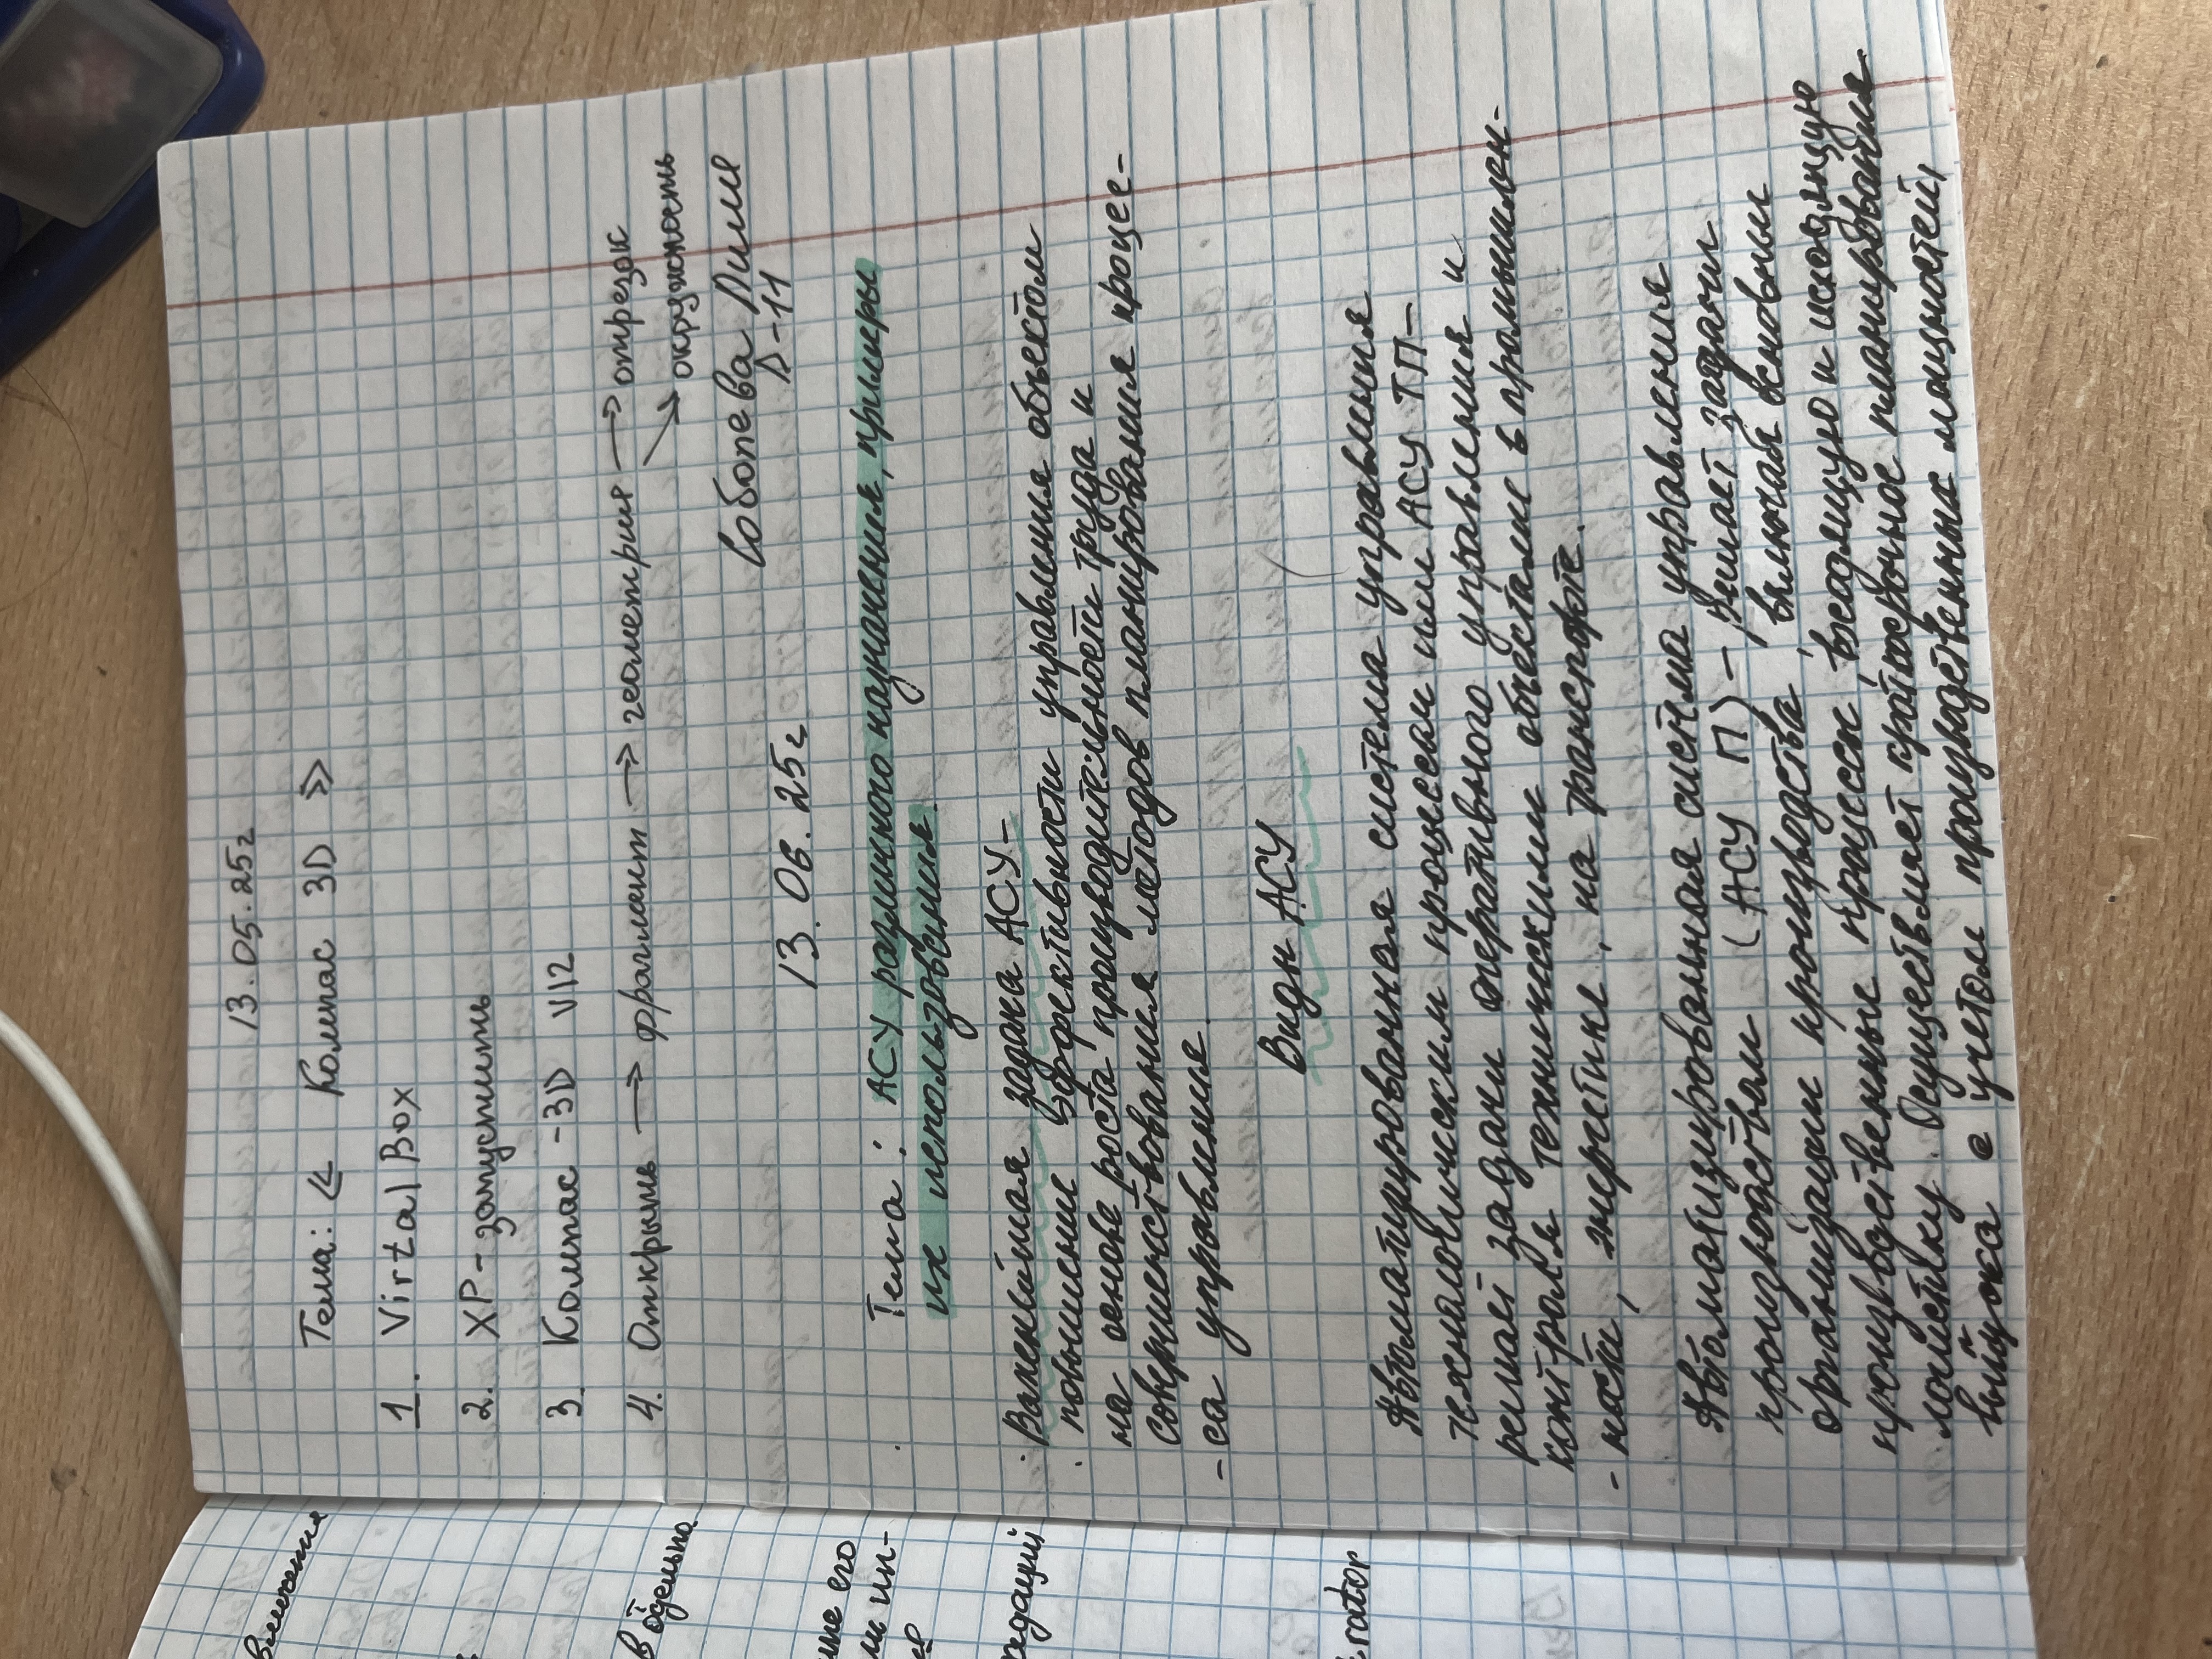 13.05.25г
Тема: « Компас 3D »
1. VirtalBox
2. XP - запустить
3. Компас -3D V12
4. Открыть → фрагмент → геометрия → отрезок
→ окружность
Соботева Лиля
Д-11
13.06.25г
Тема: АСУ различного назначения, примеры
их использования.
Важнейшая задача АСУ -
повышение эффективности управления объектом
на основе роста производительности труда и
совершенствования методов планирования процес-
- са управления.
Виды АСУ
Автоматизированная система управления
технологическим процессом или АСУ ТП -
решает задачи оперативного управления и
контроля техническими объектами в промышлен-
- ности, энергетике, на транспорте.
Автоматизированная система управления
производством (АСУ П) - решает задачи
организации производства, включая основные
производственные процессы, входящую и исходящую
логистику. Осуществляет краткосрочное планирование
выпуска с учетом производственных мощностей,
влияния
в отдельно.
его
ли ин-
rator